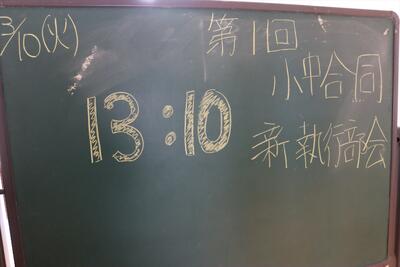 3/10(火)
第1回
小中合同
13:10
新執行部会